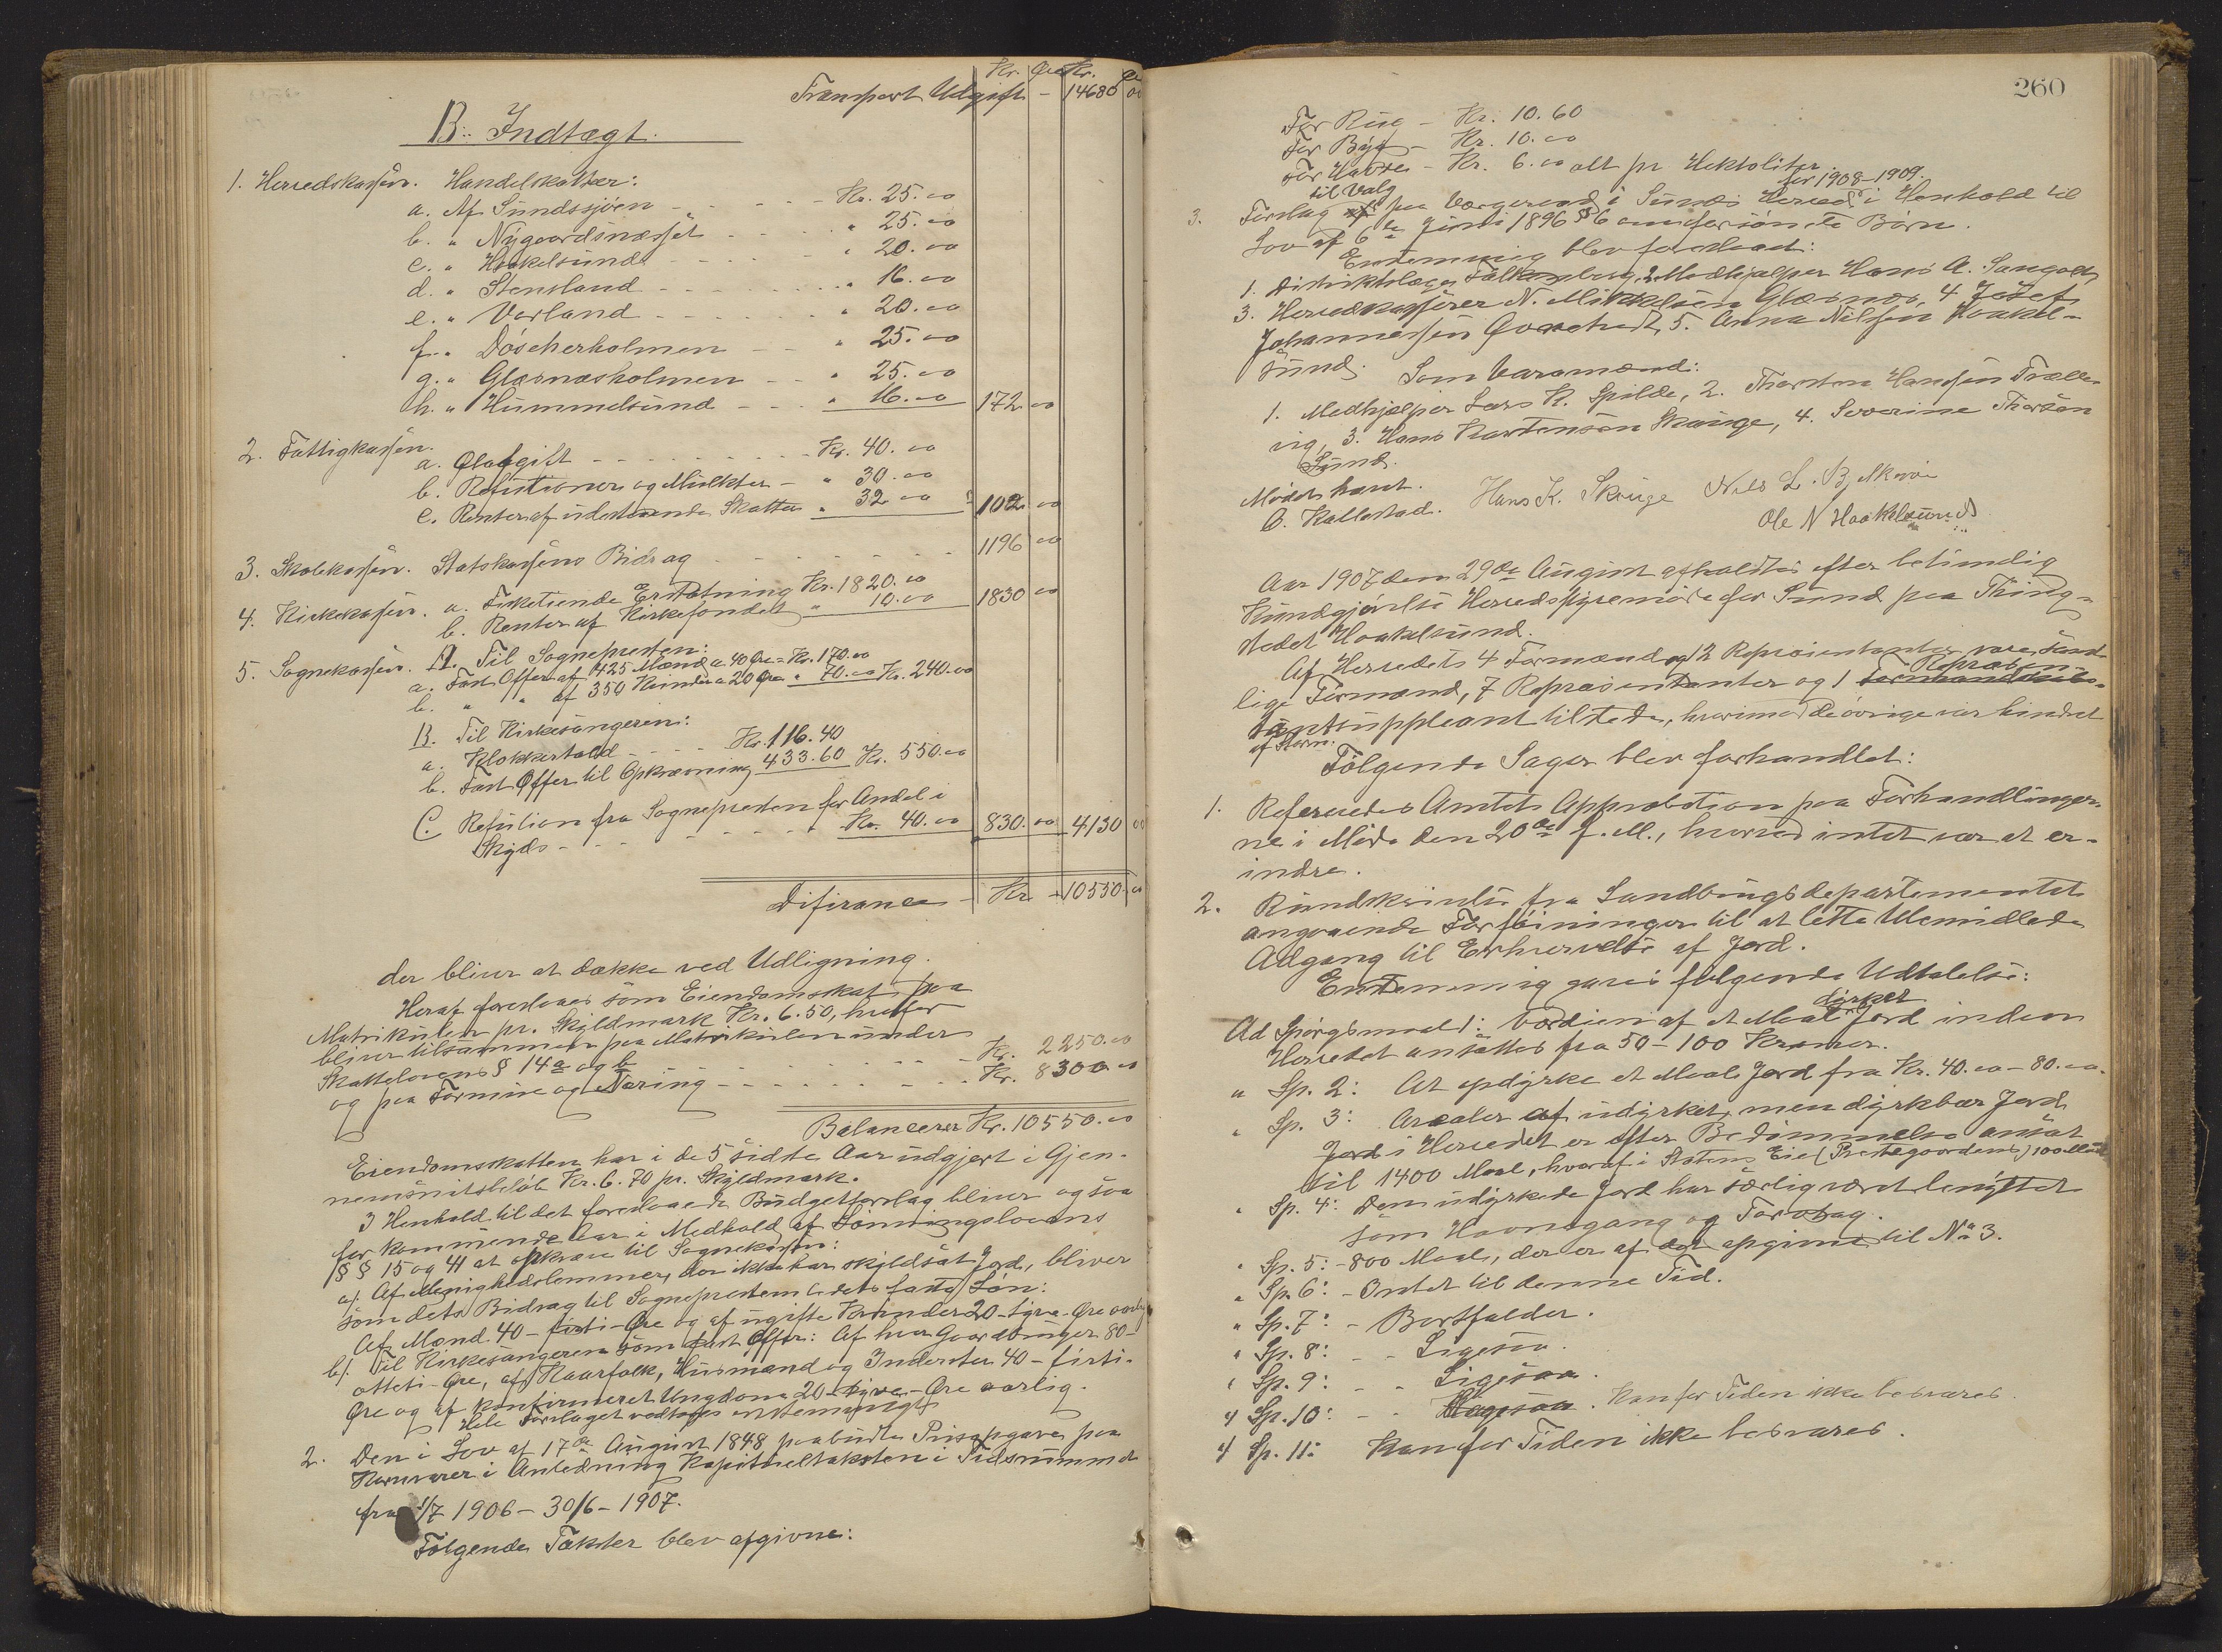 Kr. Øre Kr. Øre
Transport Udgift - 14680 00
B. Indtægt.
1. Herredskassen. Handelskatter:
a. Af Sundssjøen - - - - Kr. 25.00
b. " Nygaardsnæsset - - - " 25.00
c. " Haakelsund - - - - " 20.00
d. " Stensland - - - - " 16.00
e. " Vorland - - - - " 20.00
f. " Døscherholmen - - " 25.00
g. " Glæsnæsholmen - - " 25.00
h. " Hummelsund - - - " 16.00 172 00
2. Fattigkassen.
a. Ølafgift - - - - Kr. 40.00
b. Refutioner og Mulkter - " 30.00
c. Renter af udestaaende Skatter " 32.00 102 00
3. Skolekassen. Statskassens Bidrag - - - - 1196 00
4. Kirkekassen. a. Fisketiende Erstatning Kr. 1820.00
b. Renter af Kirkefondet " 10.00 1830 00
5. Sognekassen. A. Til Sognepresten:
a. Fast Offer af 425 Mænd a 40 Øre = Kr. 170.00
b. " " af 350 Kvinder a 20 Øre " 70.00 Kr. 240.00
B. Til Kirkesangeren:
a. Klokkertold - - - - Kr. 116.40
b. Fast Offer til Opkrævning 433.60 Kr. 550.00
C. Refution fra Sognepresten for Andel i
Skyds - - - - Kr. 40.00 830.00 4130 00
Diferance - Kr. - 10550 00
der bliver at dække ved Udligning.
Heraf foreslaaes som Eiendomsskat paa
Matrikulen pr. Skyldmark Kr. 6.50, hvilket
bliver tilsammen paa Matrikulen under
Skattelovens § 14 a og b - - - - Kr. 2250.00
og paa Formue og Næring - - - - Kr. 8300.00
Balancerer Kr. 10550.00
Eiendomsskatten har i de 5 sidste Aar udgjort i Gjen-
nemsnitsbeløb Kr. 6.70 pr. Skyldmark.
I Henhold til det foreslaaede Budgetforslag bliver ogsaa
for kommende Aar i Medhold af Lønningslovens
§§ 15 og 41 at opkræve til Sognekassen:
a). Af Menighedslemmer, der ikke har skyldsat Jord, bliver
som dets Bidrag til Sogneprestembedets faste Løn:
Af Mænd 40 - firti - Øre og af ugifte Kvinder 20 - tyve - Øre aarlig
b). Til Kirkesangeren som fast Offer: Af hver Gaardbruger 80 -
otteti - Øre, af Kaarfolk, Husmænd og Inderster 40 - firti -
Øre og af konfirmeret Ungdom 20 - tyve - Øre aarlig.
Hele Forslaget vedtages enstemmigt
2. Den i Lov af 17de August 1848 paabudte Prisopgave paa
Kornvarer i Anledning Kapitueltaksten i Tidsrummet
fra 1/7 1906 - 30/6 - 1907.
Følgende Takster blev afgivne:
260
For Rug - Kr. 10.60
For Byg - Kr. 10.00
For Havre - Kr. 6.00 alt pr Hektoliter.
til Valg for 1908-1909.
3. Forslag paa Værgeraad i Sunds Herred i Henhold til
Lov af 6te Juni 1896 § 6 om forsømte Børn.
Enstemmig blev foreslaaet:
1. Distriktslæge Falkenberg, 2. Medhjælper Hans A. Sangolt,
3. Herredkasserer N. Mikkelsen Glæsnæs, 4 Josef
Johannessen Qvarhest, 5. Anna Nilsen Haakel-
sund. Som Varamænd:
1. Medhjælper Lars K. Spilde, 2. Thorsten Hansen Trælle-
vig, 3. Hans Karstensen Skauge, 4. Severine Thorsen
Sund.
Mødet hævet.
O. Kallestad. Hans K. Skauge Nils L. Bjelkerøi
Ole N Haakelsund
Aar 1907 den 29de August afholdtes efter betimelig
Kundgjørelse Herredsstyremøde for Sund paa Thing-
stedet Haakelsund.
Af Herredets 4 Formænd og 12 Repræsentanter vare samt-
lige Formænd, 7 Repræsentanter og 1 Repræsen-
tantsuppleant tilstede, hvorimod de øvrige var hindret
af Storm.
Følgende Sager blev forhandlet:
1. Refereredes Amtets Approbation paa Forhandlinger-
ne i Møde den 20de f. M., hvorved intet var at er-
indre.
2. Rundskrivelse fra Landbrugsdepartementet
angaaende Forføininger til at lette Ubemidlede
Adgang til Erhvervelse af Jord.
Enstemmig gaves følgende Udtalelse:
Ad Spørgsmaal 1: Værdien af et Maal dyrket Jord inden
Herredet ansættes fra 50 - 100 Kroner.
" Sp. 2: At opdyrke et Maal Jord fra Kr. 40.00 - 80.00.
" Sp. 3: Arealer af udyrket, men dyrkbar Jord
Jord i Herredet er efter Bedømmelse ansat
til 1400 Maal, hvoraf i Statens Eie (Prestegaardens) 100 Maal
" Sp. 4: Den udyrkede Jord har særlig været benyttet
som Havnegang og Torvtag.
" Sp. 5: - 800 Maal, der er af det opgivne til No 3.
" Sp. 6: - Intet til denne Tid.
" Sp. 7: - Bortfalder.
" Sp. 8: - - Ligesaa.
" Sp. 9: - - Ligesaa.
" Sp. 10: - - Ligesaa. Kan for Tiden ikke besvares.
" Sp. 11: Kan for Tiden ikke besvares.